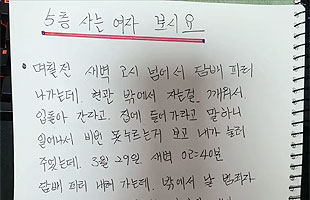 5층 사는 여자 보시요
며칠전 새벽 2시 넘어서 담배 피러
나가는데. 현관 밖에서 자는걸. 깨워서
입돌아 간다고. 집에 들어가라고 말하니
일어나서 비번 못누르는거 보고 내가 눌러
주었는데. 3월 29일 새벽 02:40분
담배 피러 내려 가는데. 밖에서 날 범죄자